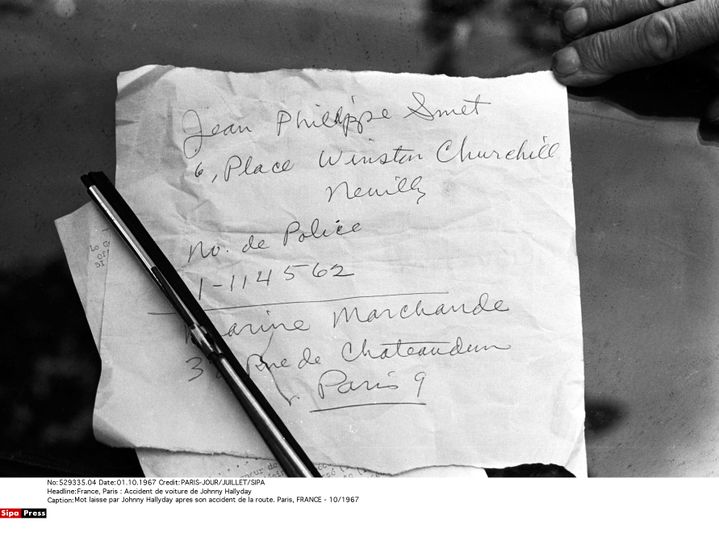 Jean Philippe Smet
6, Place Winston Churchill
Neuilly
No. de Police
1-114562
Marine Marchande
Rue de Chateaudun
Paris 9
No:529335.04 Date:01.10.1967 Credit:PARIS-JOUR/JUILLET/SIPA
Headline:France, Paris : Accident de voiture de Johnny Hallyday
Caption:Mot laisse par Johnny Hallyday apres son accident de la route. Paris, FRANCE - 10/1967
Sipa Press